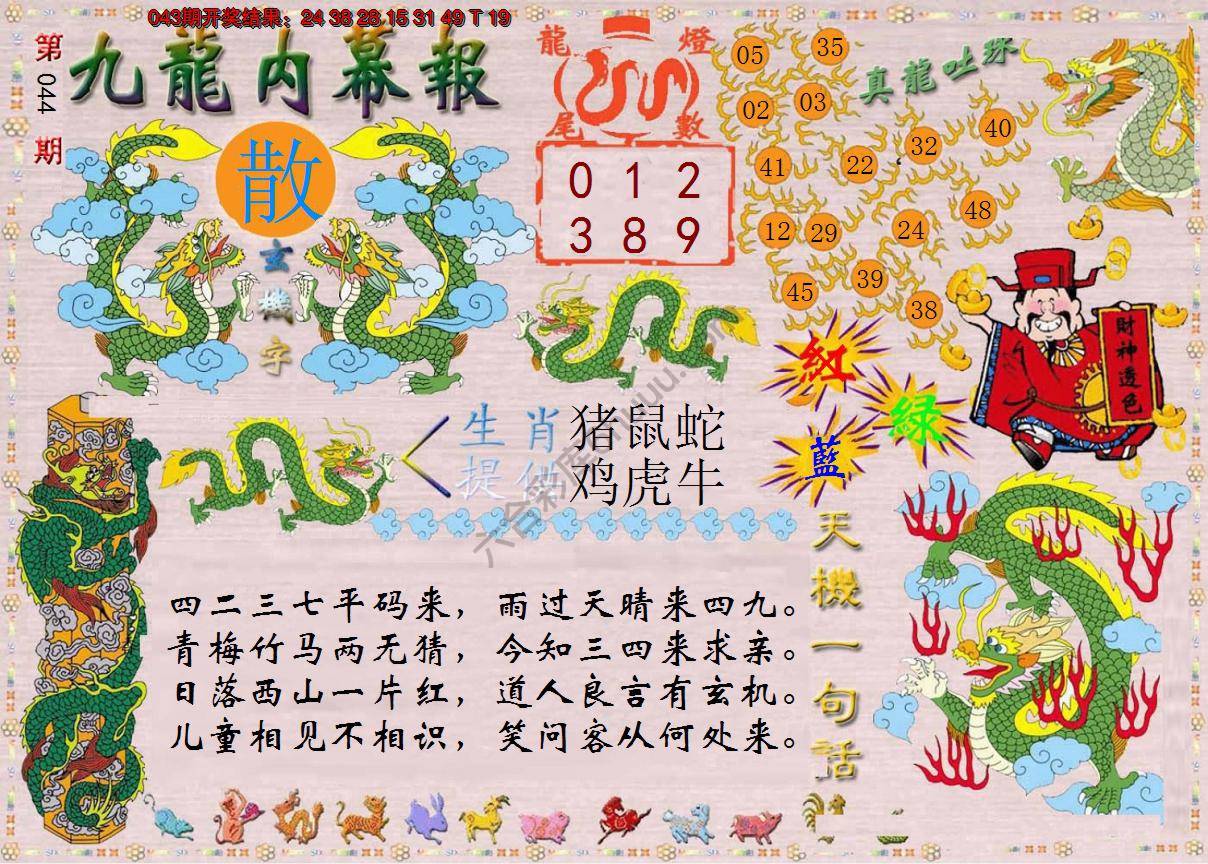 043期开奖结果：24 38 28 15 31 49 T 19
第044期
九龍内幕報
散
玄機字
龍燈尾數
0 1 2
3 8 9
真龍吐珠
05 35
02 03
41 22 32 40
12 29 24 48
45 39 38
財神透色
紅
綠
藍
生肖提供
猪鼠蛇
鸡虎牛
六合彩
天機一句話
四二三七平码来，雨过天晴来四九。
青梅竹马两无猜，今知三四来求亲。
日落西山一片红，道人良言有玄机。
儿童相见不相识，笑问客从何处来。